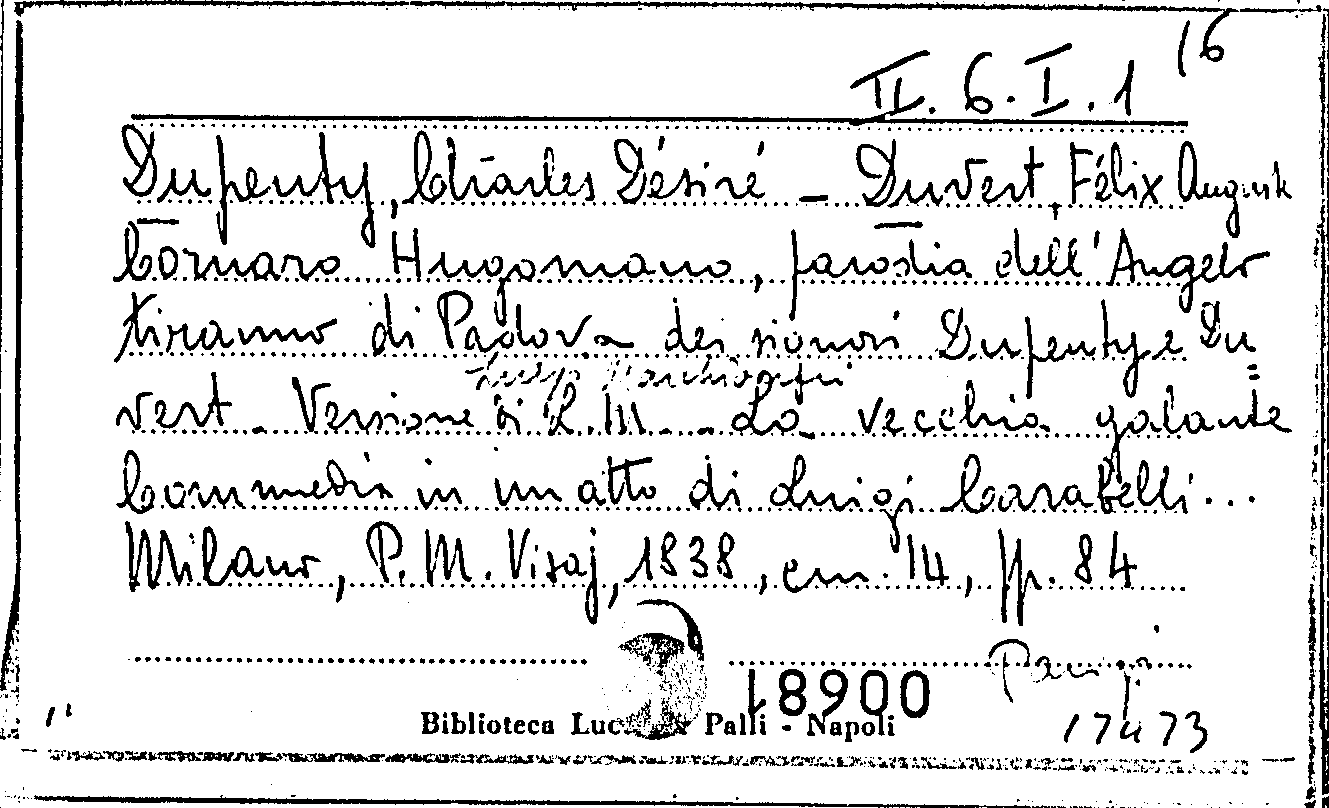 II. 6. I. 1 16
Dupenty, Charles Désiré – Duvert, Félix August
Cornaro Hugomano, parodia dell'Angelo
tiranno di Padova dei signori Dupenty e Du=
Luigi Marchionni
vert. Versione di L. M. – La vecchia galante
Commedia in un atto di Luigi Carabelli...
Milano, P. M. Visaj, 1838, cm. 14, pp. 84
18900
Biblioteca Palli - Napoli
17473